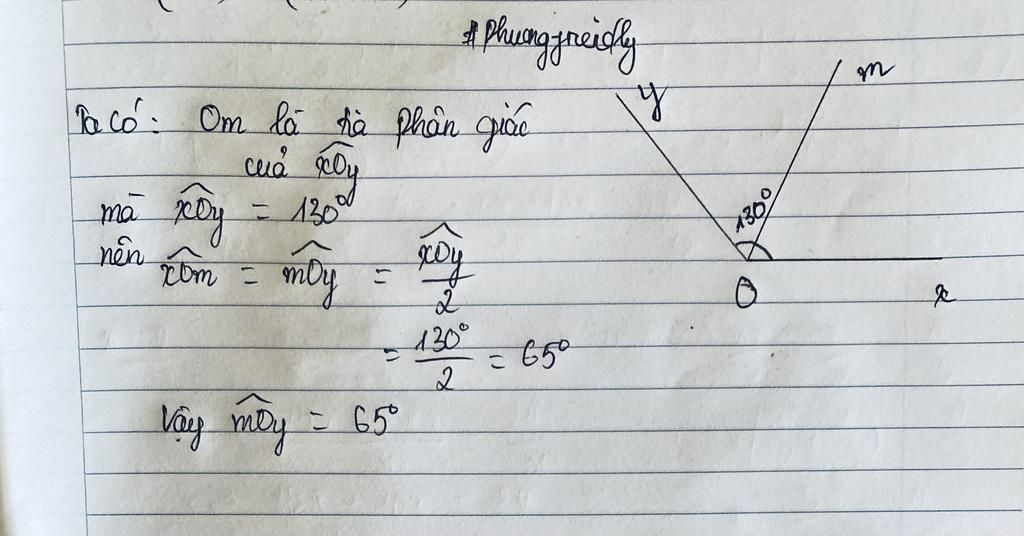 #Phuongfreidly
Ta có: Om là tia phân giác
của x̂Oy
mà x̂Oy = 130°
nên x̂Om = m̂Oy = x̂Oy/2
= 130°/2 = 65°
Vậy m̂Oy = 65°
y
m
130°
O
x